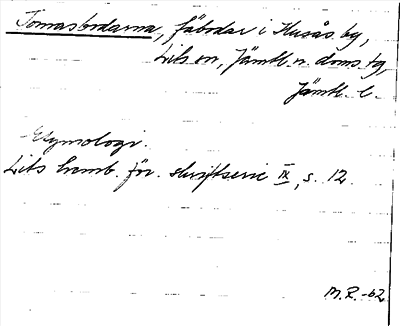 Tomasbodarna, fäbodar i Husås by,
Lits sn, Jämtl. n. doms.bg,
Jämtl. l.
Etymologi.
Lits hemb. för. skriftserie IX, s. 12.
M.R.-62